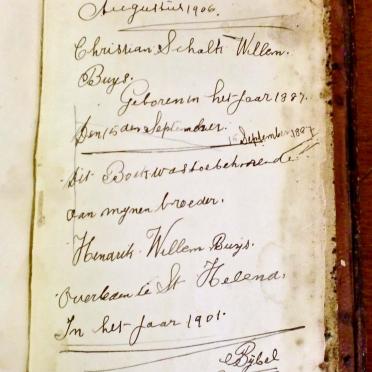 Augustus 1906.
Christian Schalk Willem.
Buys.
Geboren in het Jaar 1887.
Den 15 den September.
15 September 1887
Dit Boek was toebehorende
aan mynen broeder.
Hendrik Willem Buys.
Overleden te St Helena.
In het Jaar 1901.
Bÿbel